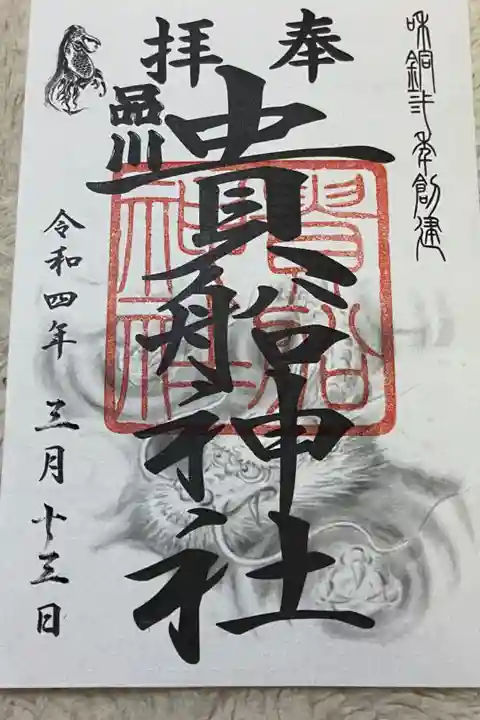 和銅弐年創建
奉拝
品川
貴船神社
貴船
神社
令和四年 三月十三日